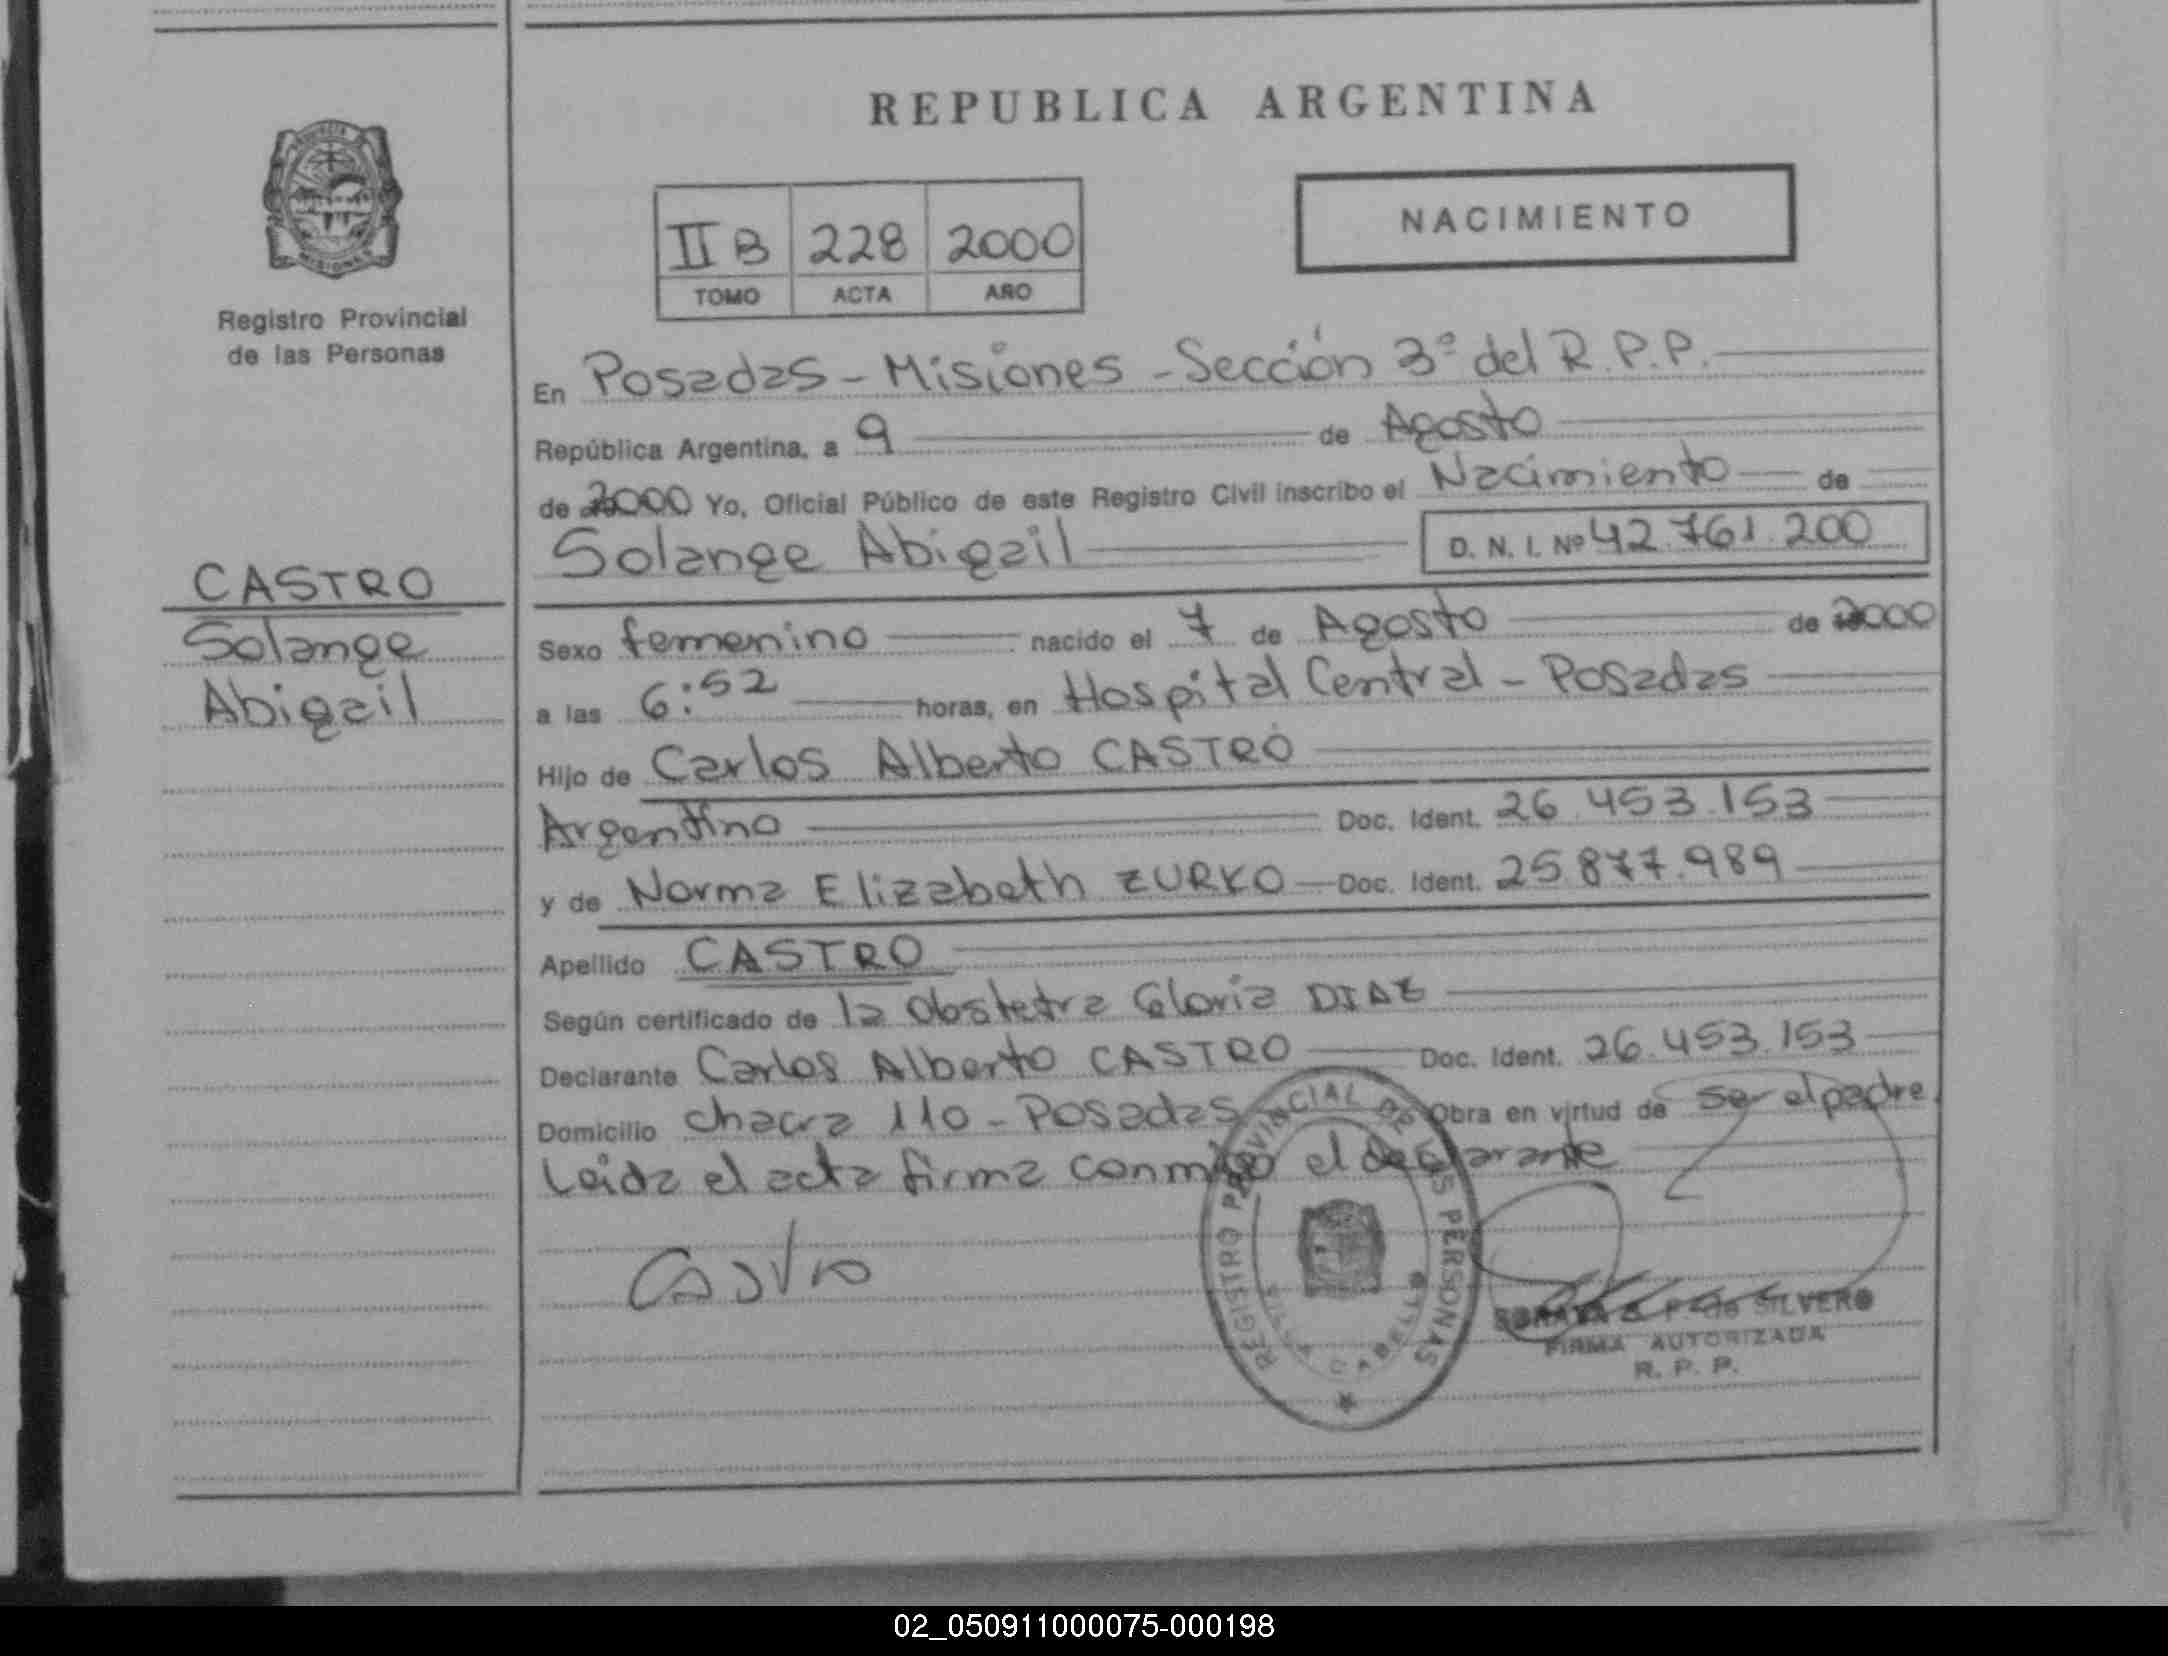 REPUBLICA ARGENTINA
NACIMIENTO
II B 228 2000
TOMO ACTA AÑO
MISIONES
Registro Provincial
de las Personas
CASTRO
Solange
Abigail
En Posadas - Misiones - Sección 3º del R.P.P.
República Argentina, a 9 de Agosto
de 2000 Yo, Oficial Público de este Registro Civil inscribo el Nacimiento de
Solange Abigail D. N. I. Nº 42.761.200
Sexo femenino nacido el 7 de Agosto de 2000
a las 6:52 horas, en Hospital Central - Posadas
Hijo de Carlos Alberto CASTRO
Argentino Doc. Ident. 26.453.153
y de Norma Elizabeth ZURKO Doc. Ident. 25.877.989
Apellido CASTRO
Según certificado de la Obstetra Gloria DIAZ
Declarante Carlos Alberto CASTRO Doc. Ident. 26.453.153
Domicilio chacra 110 - Posadas Obra en virtud de ser el padre
Leida el acta firma conmigo el declarante
Castro
REGISTRO PROVINCIAL DE LAS PERSONAS
VILLA CABELLO
P. de SILVERO
FIRMA AUTORIZADA
R. P. P.
02_050911000075-000198